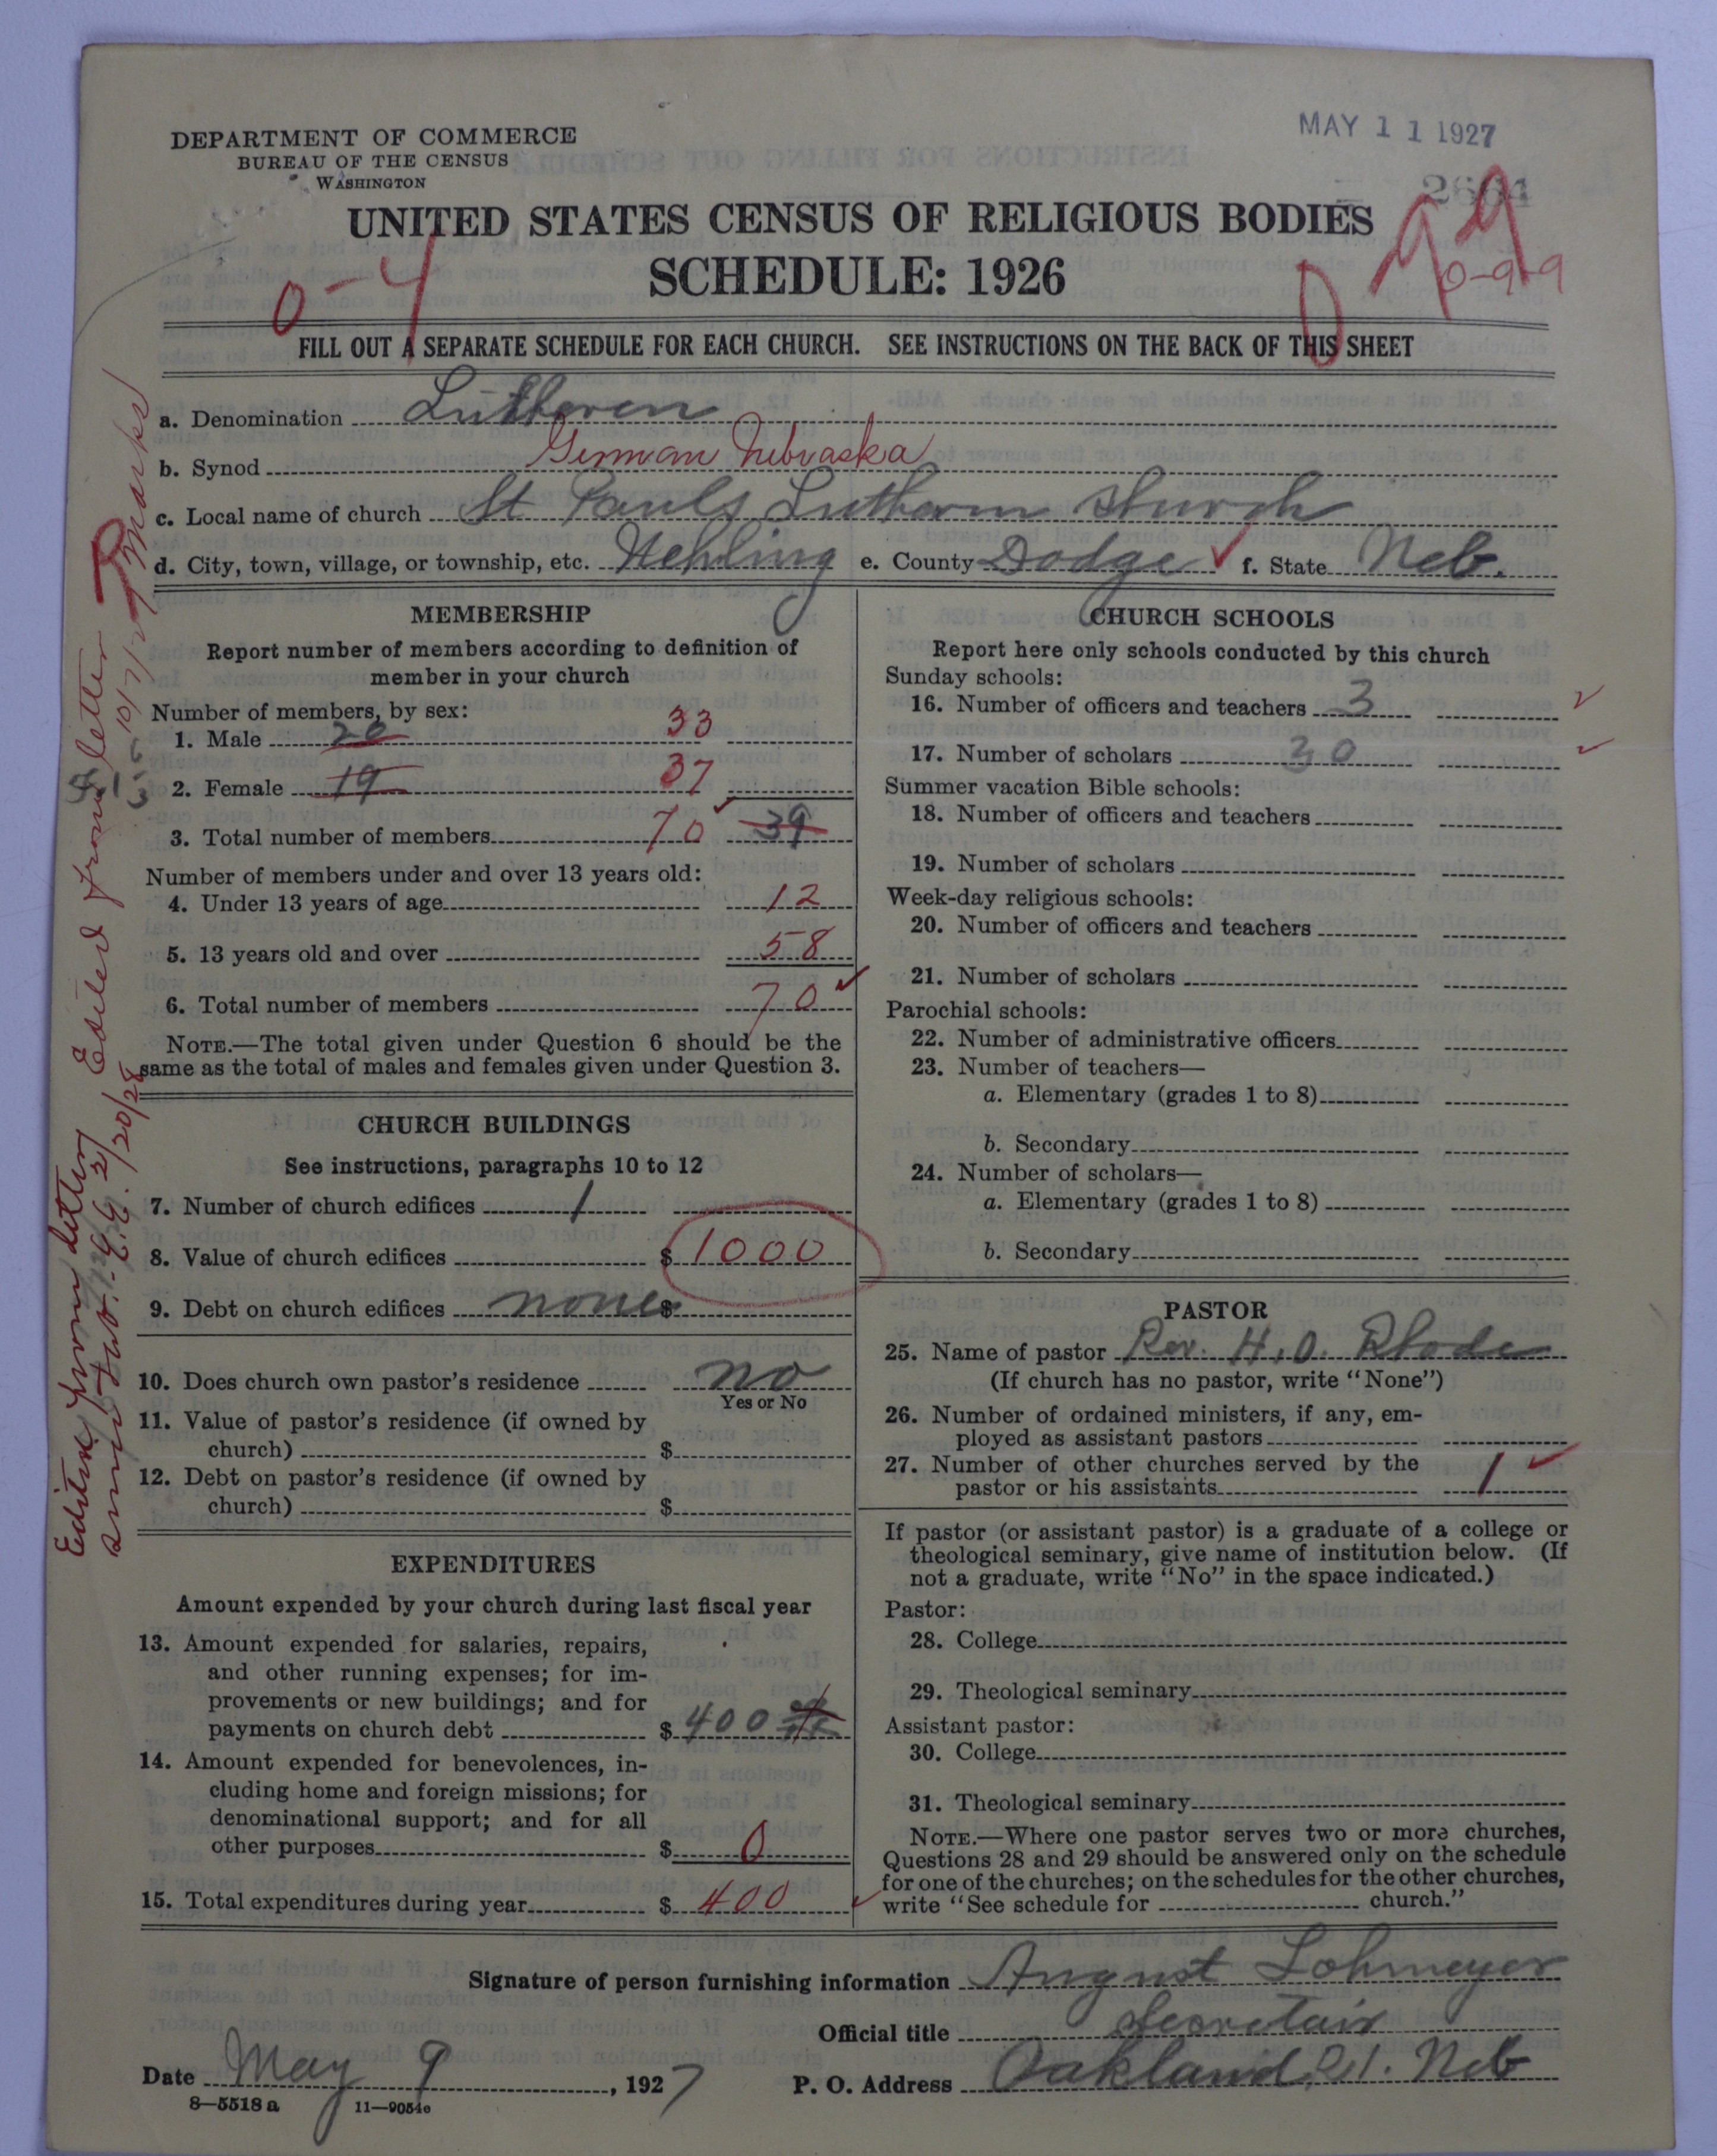 MAY 11 1927
DEPARTMENT OF COMMERCE
BUREAU OF THE CENSUS
WASHINGTON
2664
UNITED STATES CENSUS OF RELIGIOUS BODIES
SCHEDULE: 1926
0-4
0-99
FILL OUT A SEPARATE SCHEDULE FOR EACH CHURCH. SEE INSTRUCTIONS ON THE BACK OF THIS SHEET
a. Denomination Lutheren
b. Synod German Nebraska
c. Local name of church St Pauls Lutheran Church
d. City, town, village, or township, etc. Uehling e. County Dodge f. State Neb.
Remarks
Edited from letter 10/7/27
Edited from letter
2/20/28
MEMBERSHIP
Report number of members according to definition of
member in your church
Number of members, by sex:
1. Male 20 33
2. Female 19 37
3. Total number of members 70 39
Number of members under and over 13 years old:
4. Under 13 years of age 12
5. 13 years old and over 58
6. Total number of members 70
NOTE.—The total given under Question 6 should be the
same as the total of males and females given under Question 3.
CHURCH BUILDINGS
See instructions, paragraphs 10 to 12
7. Number of church edifices 1
8. Value of church edifices $ 1000
9. Debt on church edifices none $
10. Does church own pastor's residence no
Yes or No
11. Value of pastor's residence (if owned by
church) $
12. Debt on pastor's residence (if owned by
church) $
EXPENDITURES
Amount expended by your church during last fiscal year
13. Amount expended for salaries, repairs,
and other running expenses; for im-
provements or new buildings; and for
payments on church debt $ 400
14. Amount expended for benevolences, in-
cluding home and foreign missions; for
denominational support; and for all
other purposes $ 0
15. Total expenditures during year $ 400
CHURCH SCHOOLS
Report here only schools conducted by this church
Sunday schools:
16. Number of officers and teachers 3
17. Number of scholars 30
Summer vacation Bible schools:
18. Number of officers and teachers
19. Number of scholars
Week-day religious schools:
20. Number of officers and teachers
21. Number of scholars
Parochial schools:
22. Number of administrative officers
23. Number of teachers—
a. Elementary (grades 1 to 8)
b. Secondary
24. Number of scholars—
a. Elementary (grades 1 to 8)
b. Secondary
PASTOR
25. Name of pastor Rev. H. O. Rhode
(If church has no pastor, write "None")
26. Number of ordained ministers, if any, em-
ployed as assistant pastors
27. Number of other churches served by the
pastor or his assistants 1
If pastor (or assistant pastor) is a graduate of a college or
theological seminary, give name of institution below. (If
not a graduate, write "No" in the space indicated.)
Pastor:
28. College
29. Theological seminary
Assistant pastor:
30. College
31. Theological seminary
NOTE.—Where one pastor serves two or more churches,
Questions 28 and 29 should be answered only on the schedule
for one of the churches; on the schedules for the other churches,
write "See schedule for church."
Signature of person furnishing information August Lohmeyer
Official title Secretair
Date May 9, 1927 P. O. Address Oakland, Neb
8—5518 a 11—9054e